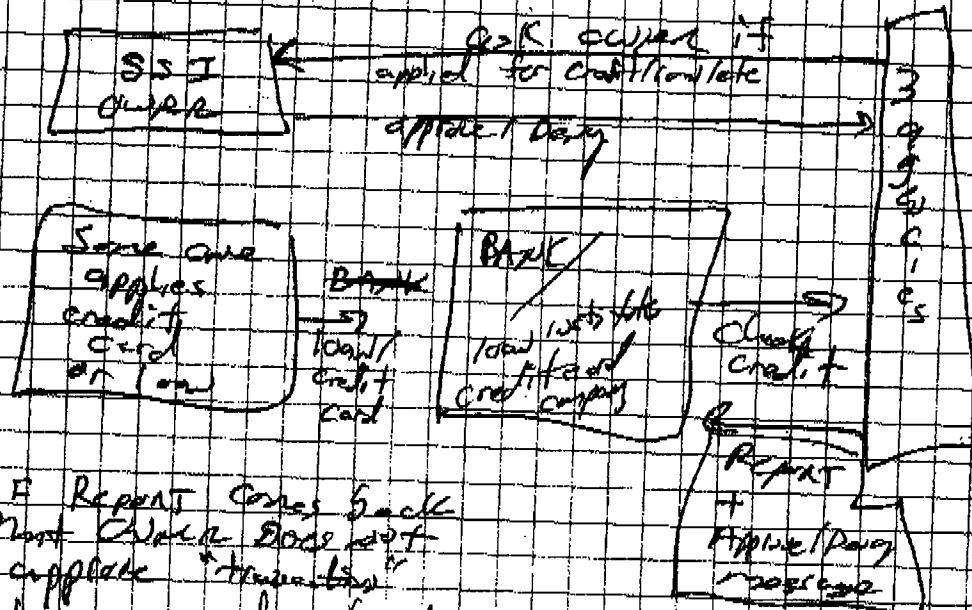 ask owner if
applied for credit/loan/etc
SSI
owner
approve/Deny
3
agencies
Some one
applies
credit
card
or loan
BANK
loan/
credit
card
BANK/
loan institute
credit card
company
check
credit
REPORT
+
Approve/Deny
message
IF REPORT comes back
that owner Does not
approve "transaction"